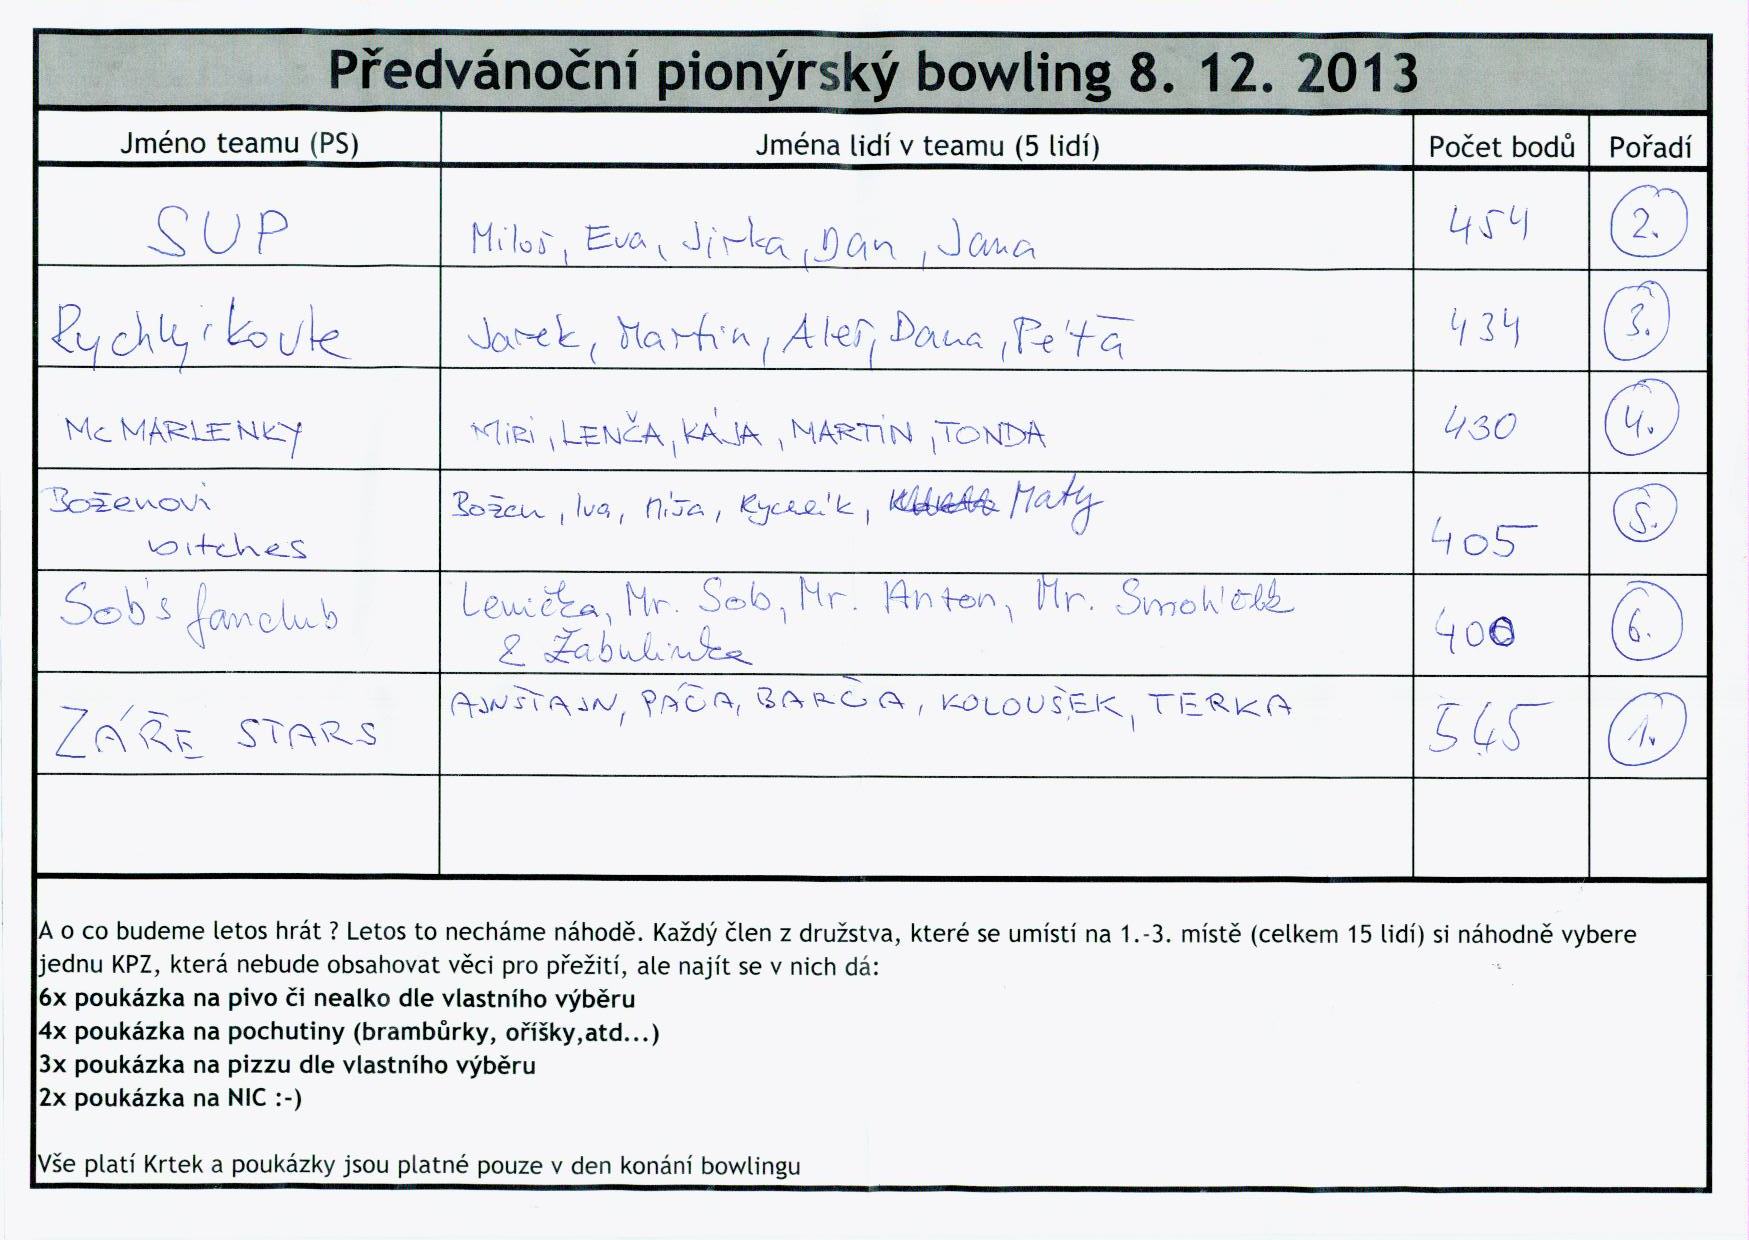 Předvánoční pionýrský bowling 8. 12. 2013
Jméno teamu (PS) Jména lidí v teamu (5 lidí) Počet bodů Pořadí
SUP Miloš, Eva, Jirka, Dan, Jana 454 2.
Rychlíkovk Jarek, Martin, Aleš, Dana, Péťa 434 3.
McMARLENKY MIRI, LENČA, KÁJA, MARTIN, TONDA 430 4.
Boženovi Božen, Iva, Míša, Rychlík, Maty 405 5.
bitches
Sob's fanclub Lenička, Mr. Sob, Mr. Anton, Mr. 400 6.
& Žabulinka
ZÁŘE STARS AJNŠTAJN, PÁČA, BARČA, KOLOUŠEK, TERKA 545 1.
A o co budeme letos hrát ? Letos to necháme náhodě. Každý člen z družstva, které se umístí na 1.-3. místě (celkem 15 lidí) si náhodně vybere
jednu KPZ, která nebude obsahovat věci pro přežití, ale najít se v nich dá:
6x poukázka na pivo či nealko dle vlastního výběru
4x poukázka na pochutiny (brambůrky, oříšky,atd...)
3x poukázka na pizzu dle vlastního výběru
2x poukázka na NIC :-)
Vše platí Krtek a poukázky jsou platné pouze v den konání bowlingu